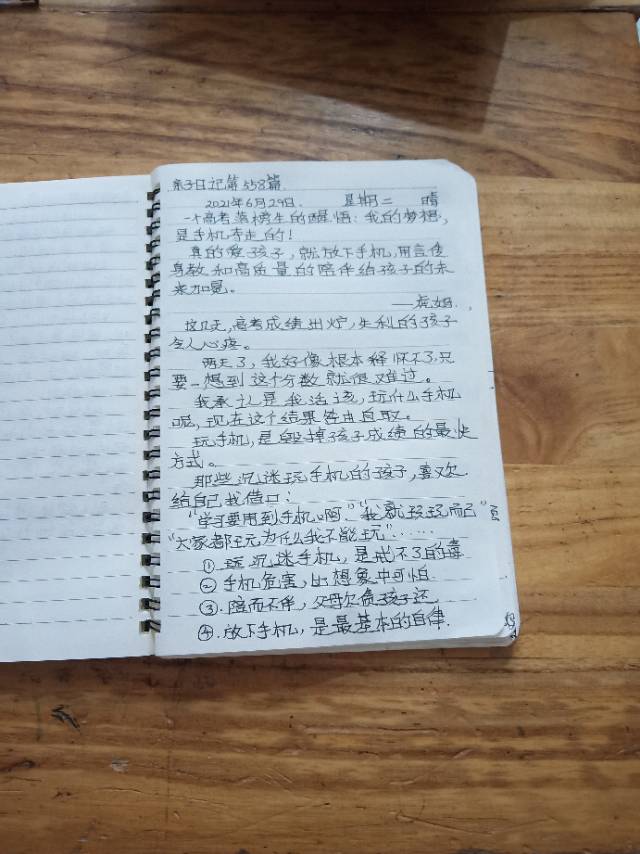 亲子日记第558篇
2021年6月29日. 星期二 晴
一个高考落榜生的醒悟:我的梦想,
是手机夺走的!
真的爱孩子,就放下手机,用言传
身教和高质量的陪伴给孩子的未
来加冕。
——虎妞.
这几天,高考成绩出炉,失利的孩子
令人心疼。
两天了,我好像根本释怀不了,只
要一想到这个分数就很难过。
我承认是我活该,玩什么手机
呢,现在这个结果咎由自取。
玩手机,是毁掉孩子成绩的最快
方式。
那些沉迷玩手机的孩子,喜欢
给自己找借口:
“学习要用到手机啊”“我就玩玩而已”
“大家都玩为什么我不能玩”······
①玩沉迷手机,是戒不了的毒
②手机危害,比想象中可怕.
③.陪而不伴,父母欠债孩子还
④.放下手机,是最基本的自律.